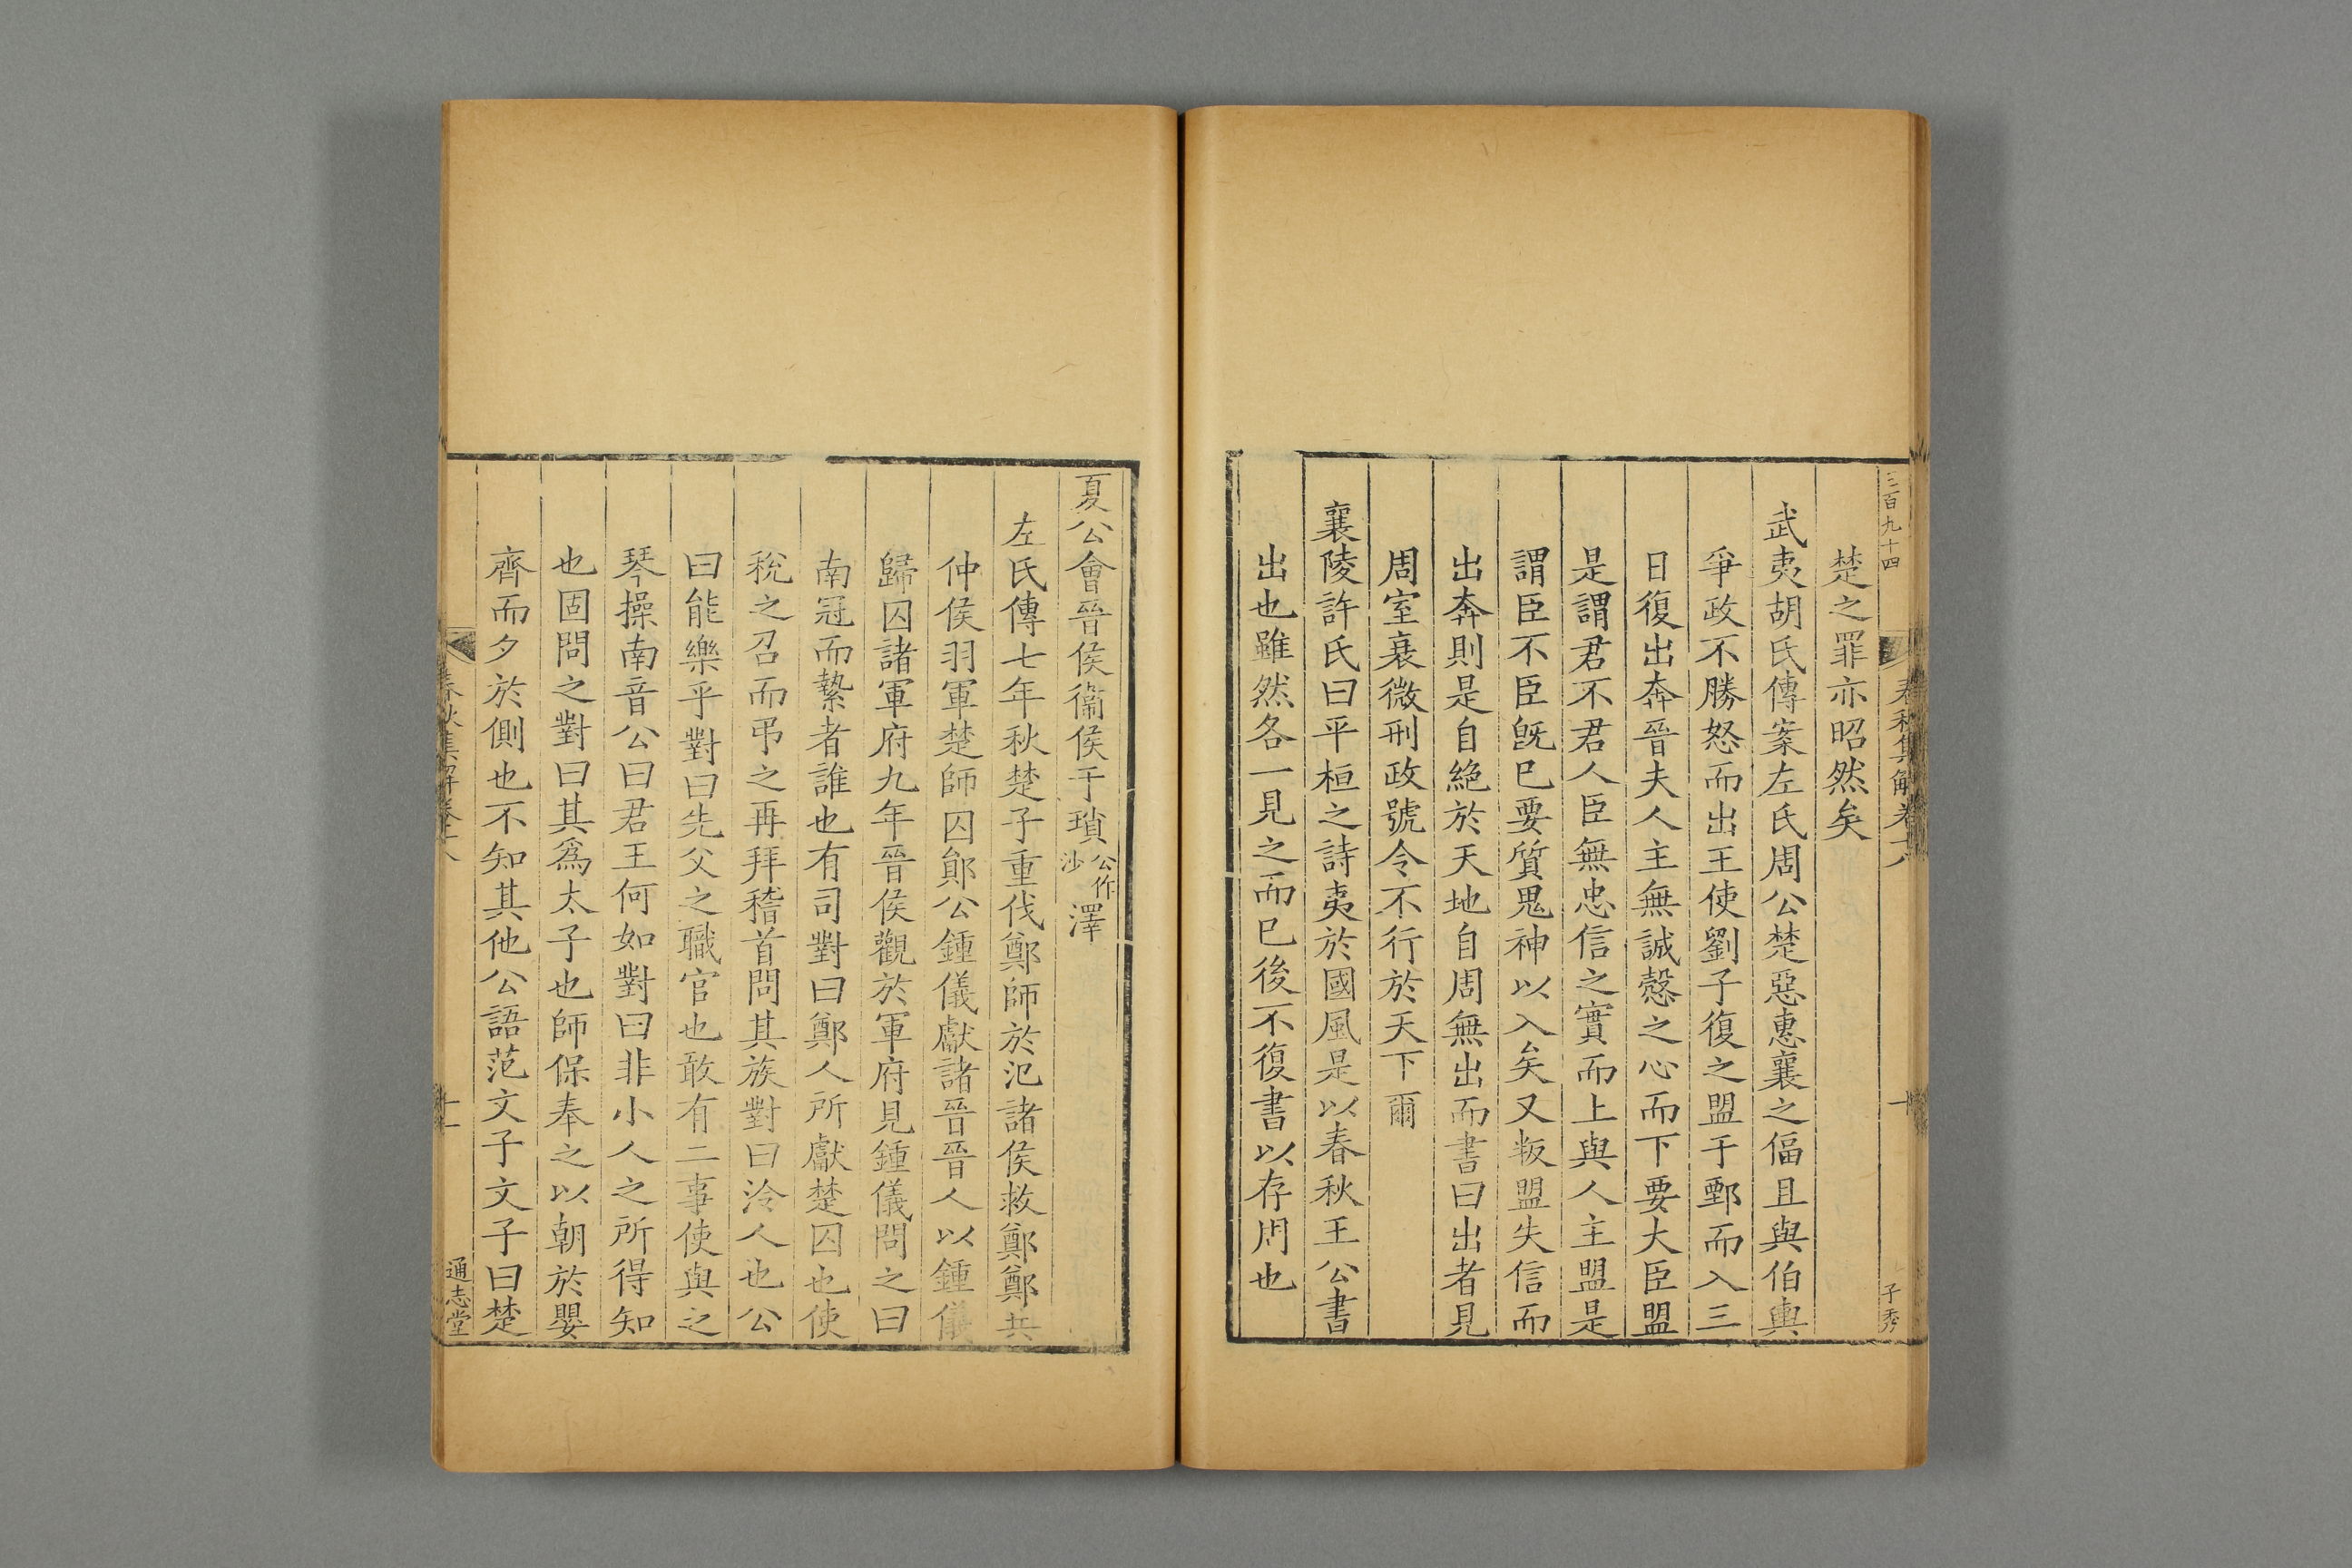 三百九十四
春秋集解卷十八
十
子秀
楚之罪亦昭然矣
武夷胡氏傳案左氏周公楚惡惠襄之偪且與伯輿
爭政不勝怒而出王使劉子復之盟于鄄而入三
日復出奔晉夫人主無誠慤之心而下要大臣盟
是謂君不君人臣無忠信之實而上與人主盟是
謂臣不臣旣巳要質鬼神以入矣又叛盟失信而
出奔則是自絶於天地自周無出而書曰出者見
周室衰微刑政號令不行於天下爾
襄陵許氏曰平桓之詩夷於國風是以春秋王公書
出也雖然各一見之而巳後不復書以存周也
夏公會晉侯衞侯于瑣公作沙澤
左氏傳七年秋楚子重伐鄭師於氾諸侯救鄭鄭共
仲侯羽軍楚師囚鄖公鍾儀獻諸晉晉人以鍾儀
歸囚諸軍府九年晉侯觀於軍府見鍾儀問之曰
南冠而縶者誰也有司對曰鄭人所獻楚囚也使
稅之召而弔之再拜稽首問其族對曰泠人也公
曰能樂乎對曰先父之職官也敢有二事使與之
琴操南音公曰君王何如對曰非小人之所得知
也固問之對曰其爲太子也師保奉之以朝於嬰
齊而夕於側也不知其他公語范文子文子曰楚
春秋集解卷十八
十一
通志堂